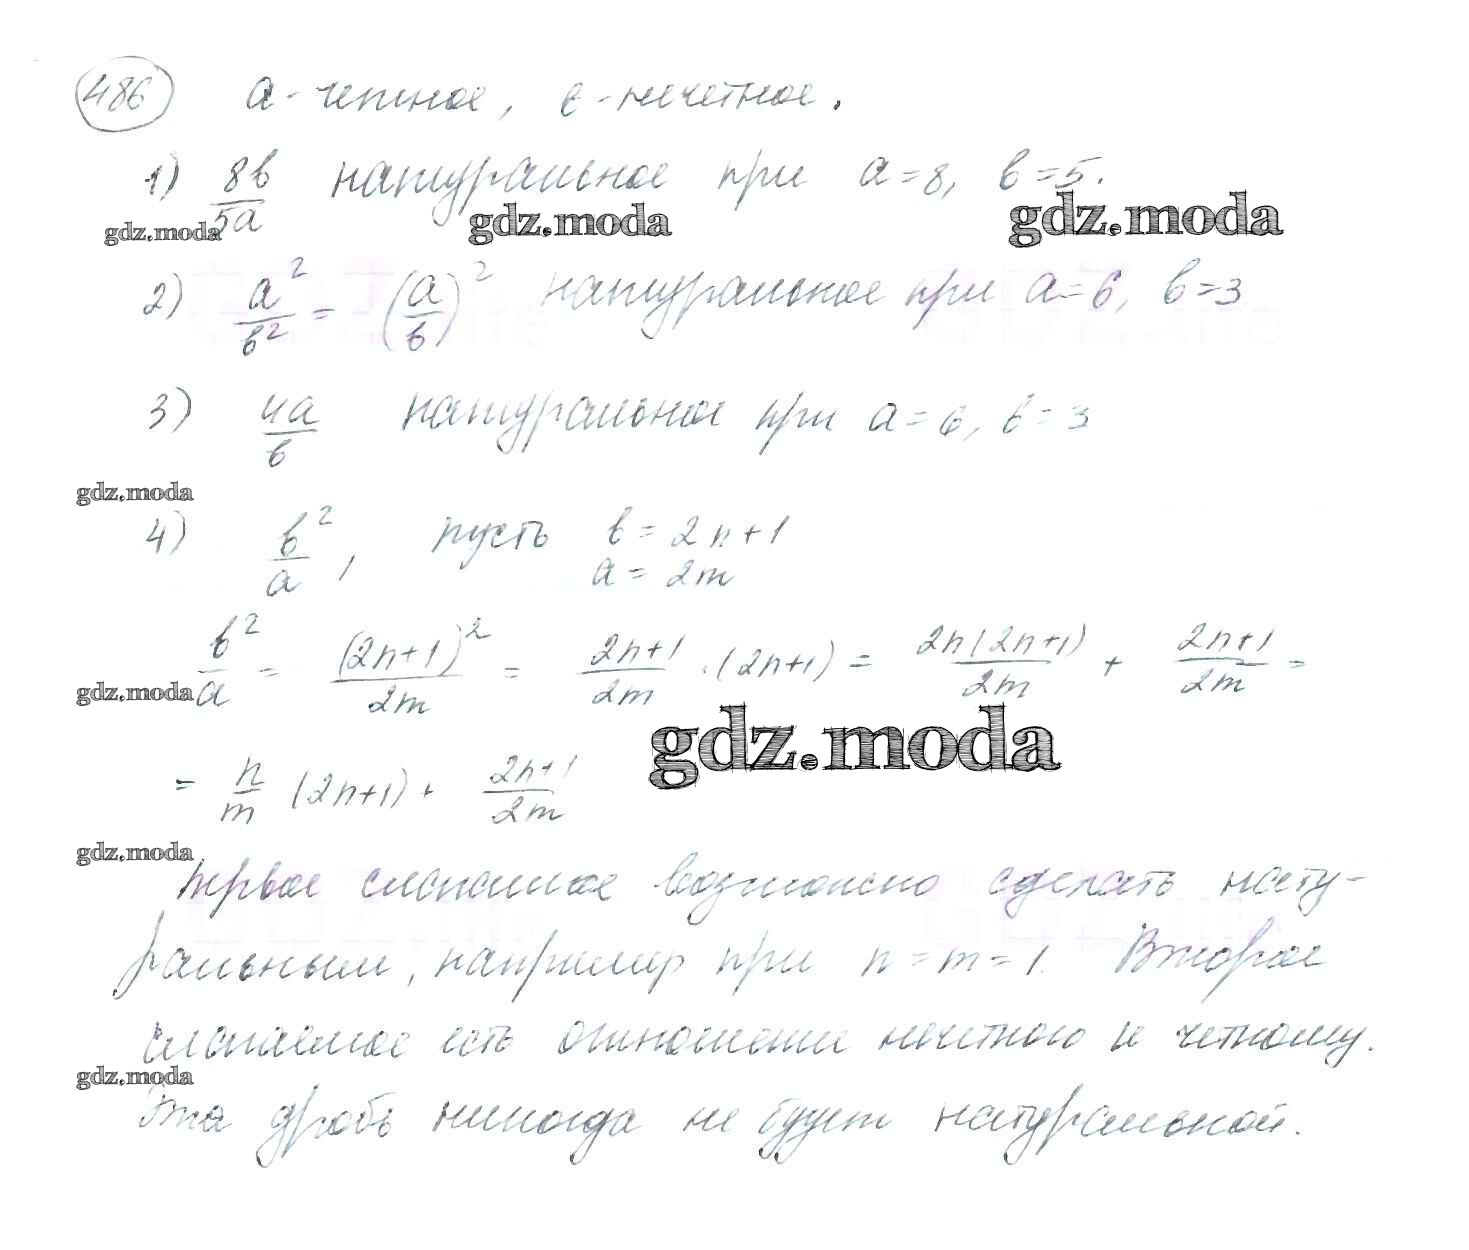 486 a - четное, в - нечетное.
1) 8в/5a натуральное при a = 8, в = 5.
gdz.moda gdz.moda gdz.moda
2) a²/в² = (a/в)² натуральное при a = 6, в = 3
3) 4a/в натуральное при a = 6, в = 3
gdz.moda
4) в²/a, пусть в = 2n+1
a = 2m
в²/a = (2n+1)²/2m = 2n+1/2m · (2n+1) = 2n(2n+1)/2m + 2n+1/2m =
gdz.moda
gdz.moda
= n/m (2n+1) + 2n+1/2m
gdz.moda
Первое слагаемое возможно сделать нату-
ральным, например при n = m = 1. Второе
слагаемое есть отношение нечетного к четному.
gdz.moda
Эта дробь никогда не будет натуральной.